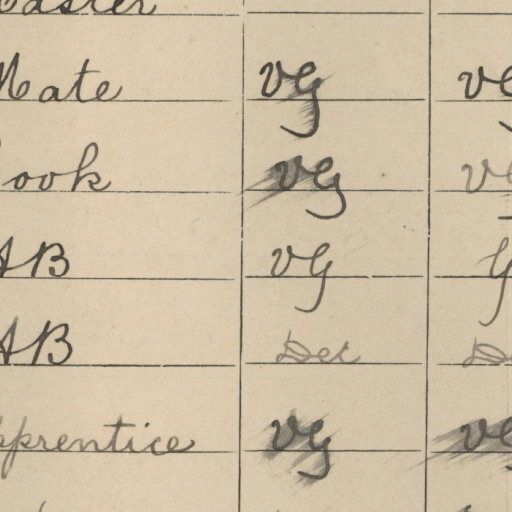 Master
Mate VG VG
Cook VG VG
AB VG G
AB Dec De
Apprentice VG VG